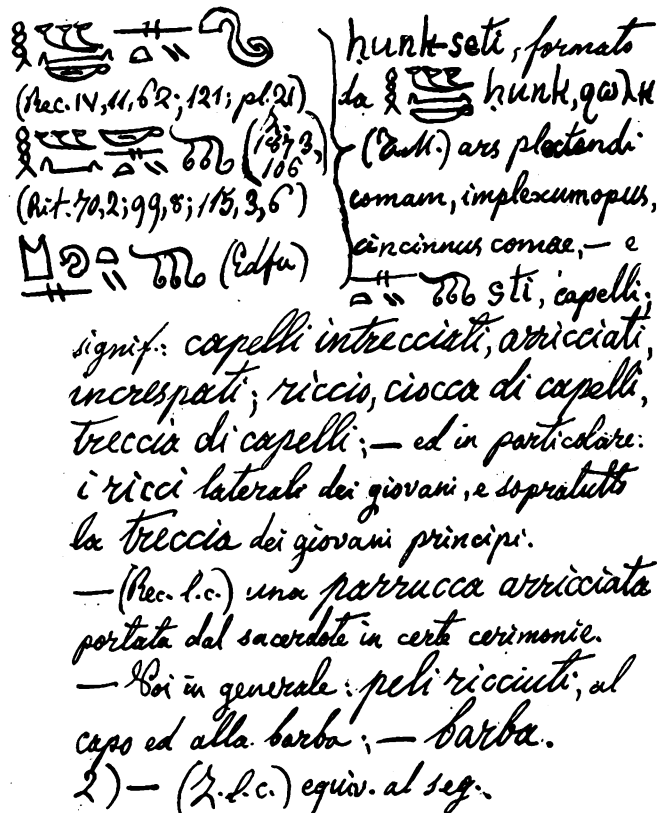 ḥunk-seti, formato
(Rec. IV, 11, 62; 121; pl. 21)
da ḥunk, ϭⲱⲗⲕ
(Z. M.) ars plectendi
(1873, 106
(Rit. 70, 2; 99, 8; 115, 3, 6)
comam, implexum opus,
(Edfu)
cincinnus comae, — e
sti, capelli;
signif.: capelli intrecciati, arricciati,
increspati; riccio, ciocca di capelli,
treccia di capelli; — ed in particolare:
i ricci laterali dei giovani, e sopratutto
la treccia dei giovani principi.
— (Rec. l.c.) una parrucca arricciata
portata dal sacerdote in certe cerimonie.
— Poi in generale: peli ricciuti, al
capo ed alla barba; — barba.
2) — (Z. l.c.) equiv. al seg.